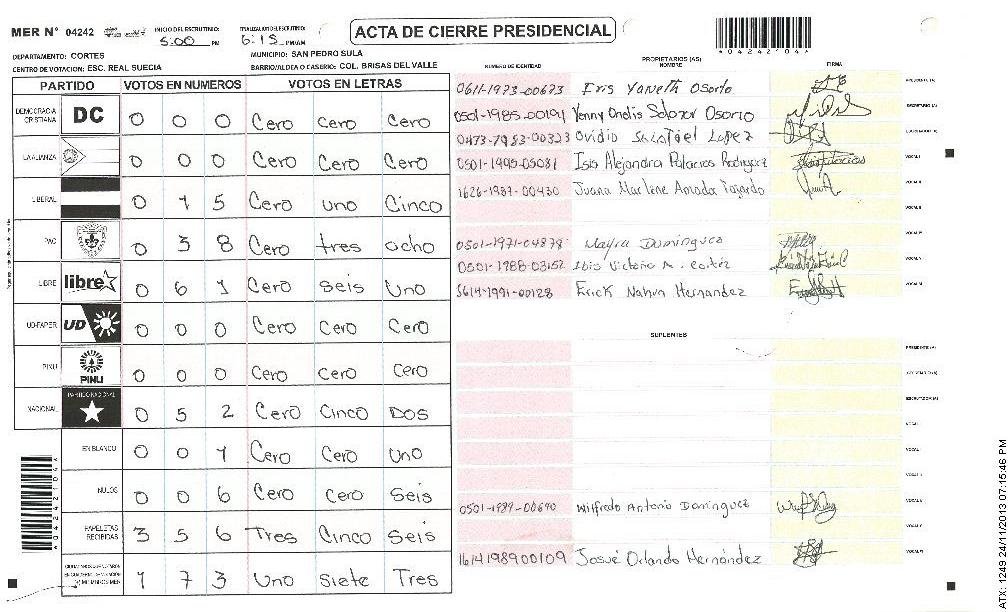 MER N° 04242 INICIO DEL ESCRUTINIO: 5:00 PM FINALIZACION DEL ESCRUTINIO: 6:15 PM/AM
ACTA DE CIERRE PRESIDENCIAL
*04242104*
DEPARTAMENTO: CORTES MUNICIPIO: SAN PEDRO SULA
CENTRO DE VOTACION: ESC. REAL SUECIA BARRIO/ALDEA O CASERIO: COL. BRISAS DEL VALLE
PARTIDO VOTOS EN NUMEROS VOTOS EN LETRAS
DEMOCRACIA CRISTIANA DC 0 0 0 Cero cero Cero
LA ALIANZA 0 0 0 Cero Cero Cero
LIBERAL 0 1 5 Cero uno Cinco
PAC 0 3 8 Cero tres ocho
LIBRE libre 0 6 1 Cero seis Uno
UD-FAPER UD 0 0 0 Cero Cero Cero
PINU PINU 0 0 0 Cero Cero Cero
NACIONAL PARTIDO NACIONAL 0 5 2 Cero Cinco Dos
EN BLANCO 0 0 1 Cero Cero Uno
NULOS 0 0 6 Cero Cero Seis
PAPELETAS RECIBIDAS 3 5 6 Tres Cinco Seis
1 7 3 Uno Siete Tres
PROPIETARIOS (AS)
NUMERO DE IDENTIDAD NOMBRE FIRMA
0611-1973-00673 Eris Yaneth Osorto PRESIDENTE (A)
0501-1985-00191 Yenny Onelis Salazar Osorio SECRETARIO (A)
0473-7983-00323 Ovidio Salatiel Lopez ESCRUTADOR (A)
0501-1995-05081 Isis Alejandra Palacios Rodriguez VOCAL I
1626-1987-00430 Juana Marlene Amador Fajardo VOCAL II
VOCAL III
0501-1971-04878 Mayra Dominguez VOCAL IV
0501-1988-03152 Ibis Victoria A. Cortéz VOCAL V
1614-1991-00128 Erick Nahun Hernandez VOCAL VI
SUPLENTES
PRESIDENTE (A)
SECRETARIO (A)
ESCRUTADOR (A)
VOCAL I
VOCAL II
VOCAL III
0501-1989-00690 Wilfredo Antonio Dominguez VOCAL IV
VOCAL V
1614198900109 Josué Orlando Hernández VOCAL VI
*04242104*
ATX: 1249 24/11/2013 07:15:46 PM